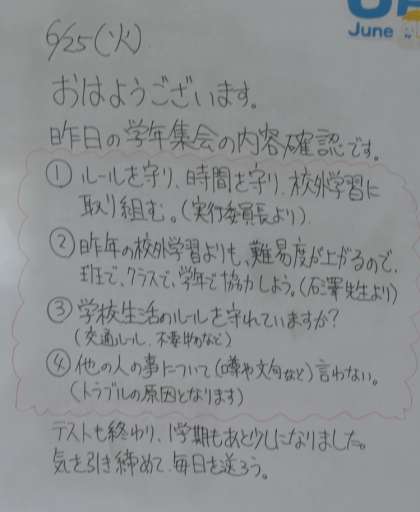 June
6/25(火)
おはようございます。
昨日の学年集会の内容確認です。
① ルールを守り、時間を守り、校外学習に
取り組む。(実行委員長より)
② 昨年の校外学習よりも、難易度が上がるので、
班で、クラスで、学年で協力しよう。(石澤先生より)
③ 学校生活のルールを守れていますか?
(交通ルール、不要物など)
④ 他の人の事について(噂や文句など)言わない。
(トラブルの原因となります)
テストも終わり、1学期もあと少しになりました。
気を引き締めて、毎日を送ろう。